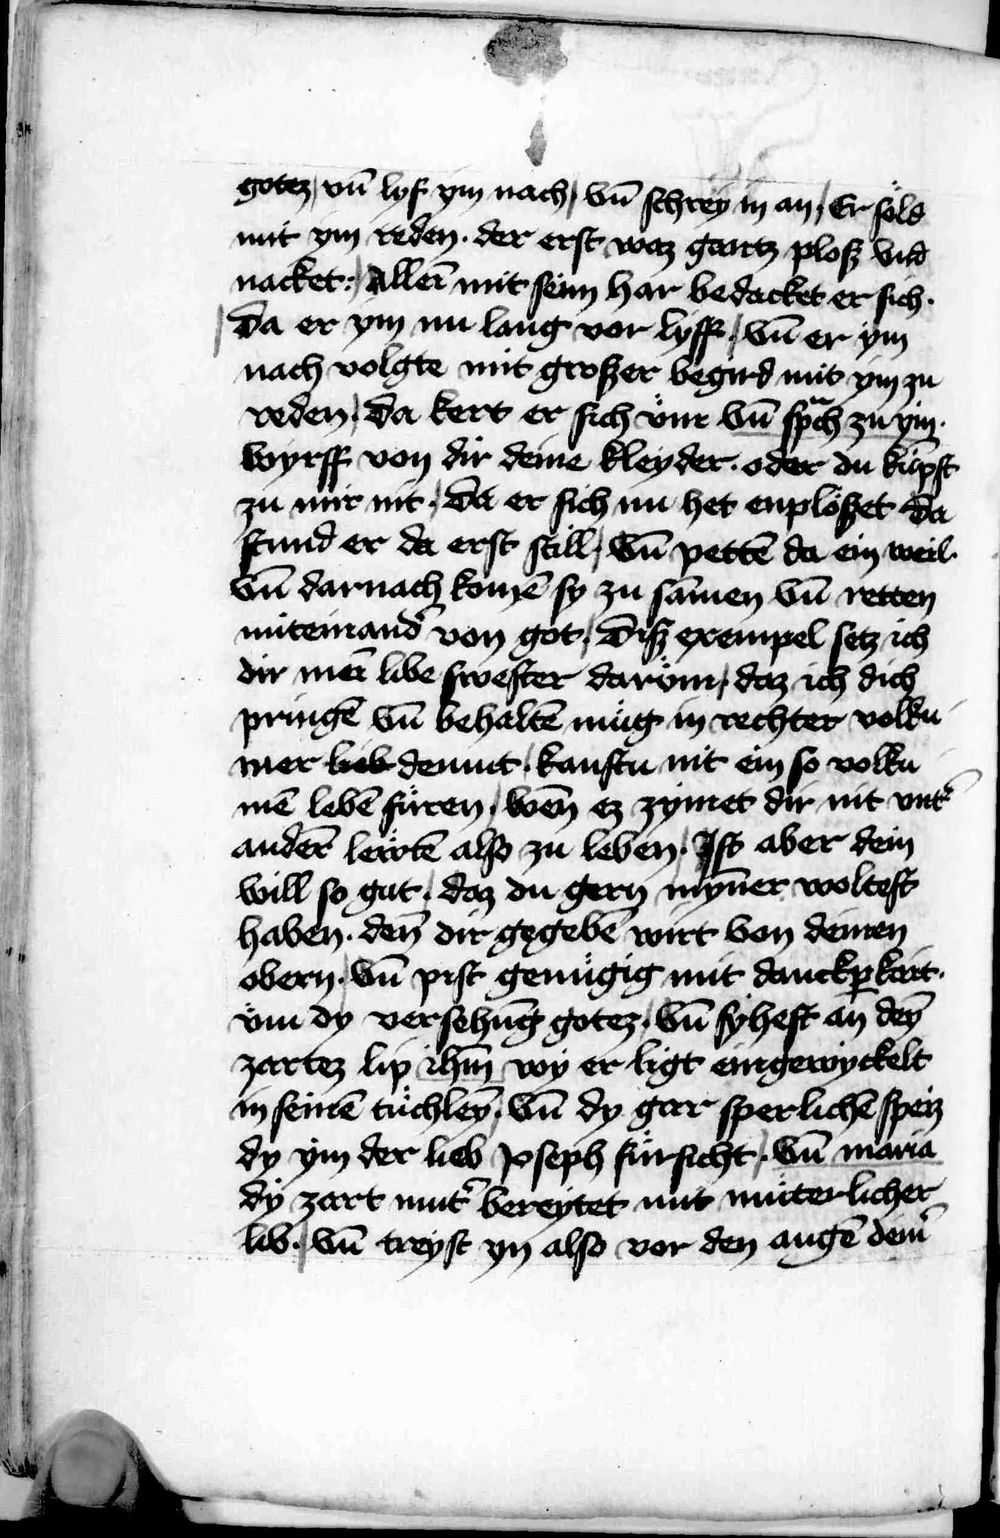 gotez / vn̄ lyf ym nach / vn̄ schrey in an / Er söld
mit ym reden · der erst waz gantz plosz vnd
nacket · / Allein̄ mit seim har bedacket er sich ·
/ Da er ym nu lang vor lyff / vn̄ er ym
nach volgte mit groszer begird mit ym zu
reden / Da kert er sich vm̈ vn̄ sprach zu ym ·
wyrff von dir deine kleyder · oder du kumpst
zu mir nit / Da er sich nu het enplöszet Da
stund er da erst still / vn̄ pettē da ein weil ·
vn̄ darnach komē sy zu sāmen vn̄ retten
miteinand᾽ von got / Disz exempel setz ich
dir mei᾽ libe swester darum̈ / daz ich dich
pringē vn̄ behaltē müg in rechter volku
mer lieb demut / kanstu nit ein so volku
mē lebē füren / wen̄ ez zymet dir nit vnt᾽
anderē lewtē also zu leben / Ist aber dein
will so gut / daz du gern myn̄er woltest
haben · den̄ dir gegebē wirt von deinen
obern / vn̄ pist genügig mit danckperkeit ·
vm̈ dy versehūg gotez / vn̄ syhest an den̄
zartez lip ihm̄ wy er ligt eingewyckelt
in seinē tüchleȳ / vn̄ dy gar sperlichē speiz
dy ym der lieb Joseph fürsicht / vn̄ maria
dy zart mut᾽ bereytet mit müterlicher
lib / vn̄ treyst yn also vor den augē deim᾽